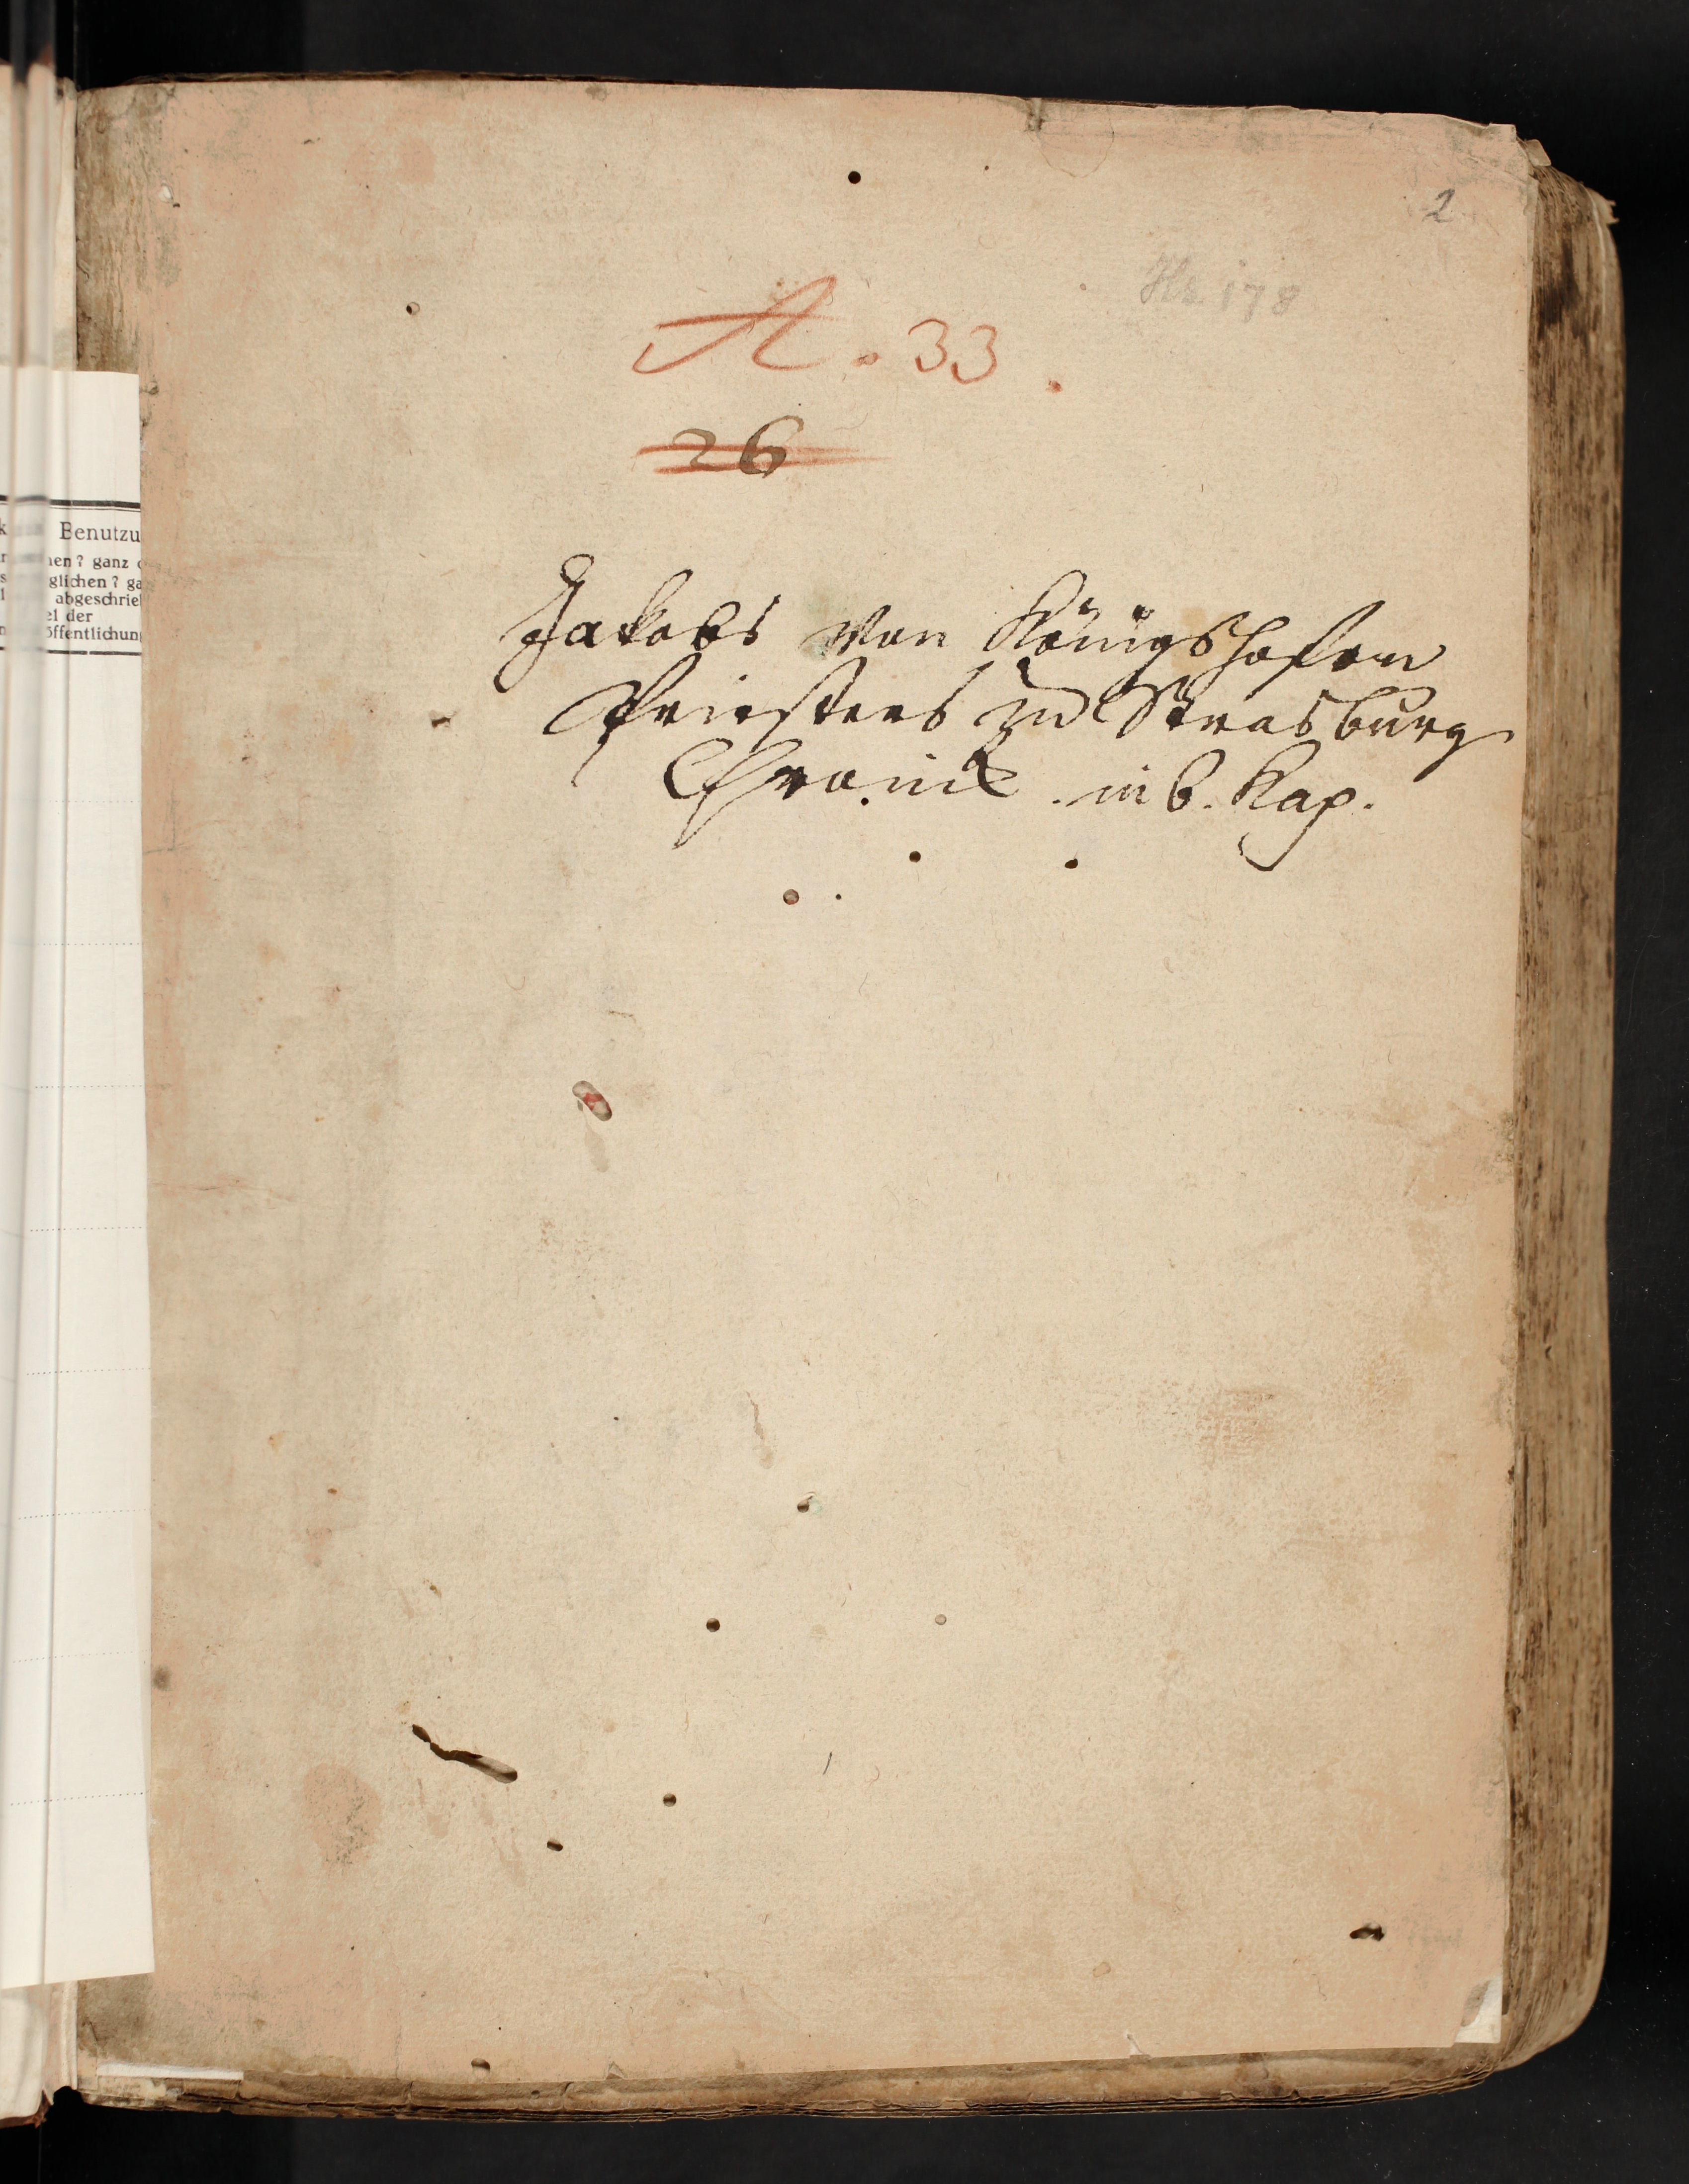 2
Hs. 178
A. 33.
26
Jakobs von Königshofen
Priesters zu Strasburg
Chronik in 6. Kap.
Benutzu
en? ganz
glichen? ga
abgeschrie
el der
öffentlichun